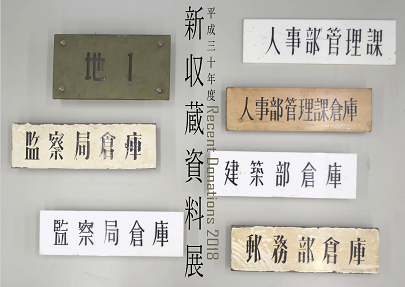 平成三十年度
新収蔵資料展
Recent Donations 2018
地1
監察局倉庫
監察局倉庫
人事部管理課
人事部管理課倉庫
建築部倉庫
郵務部倉庫